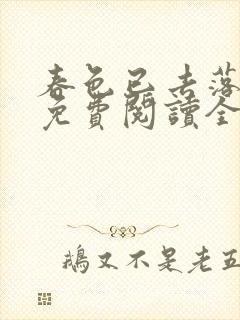 春色已去落
免費閱讀全
鵝又不是老五